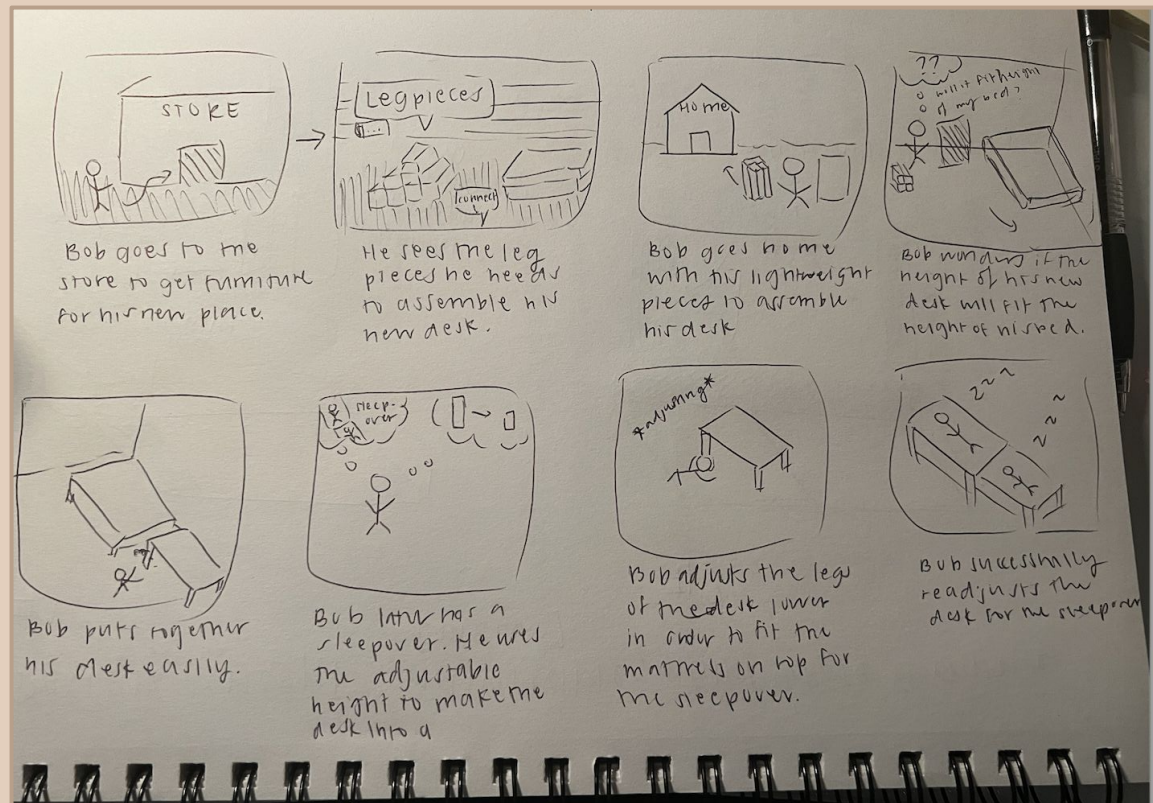 STORE
Bob goes to the
store to get furniture
for his new place.
Leg pieces
connect
He sees the leg
pieces he needs
to assemble his
new desk.
Home
Bob goes home
with his lightweight
pieces to assemble
his desk
??
will it fit height
of my bed?
Bob wonders if the
height of his new
desk will fit the
height of his bed.
Bob puts together
his desk easily.
sleep-
over
Bob later has a
sleepover. He uses
the adjustable
height to make the
desk into a
*adjusting*
Bob adjusts the legs
of the desk lower
in order to fit the
mattress on top for
the sleepover.
z z z
z z z
Bob sucessfully
readjusts the
desk for the sleepover